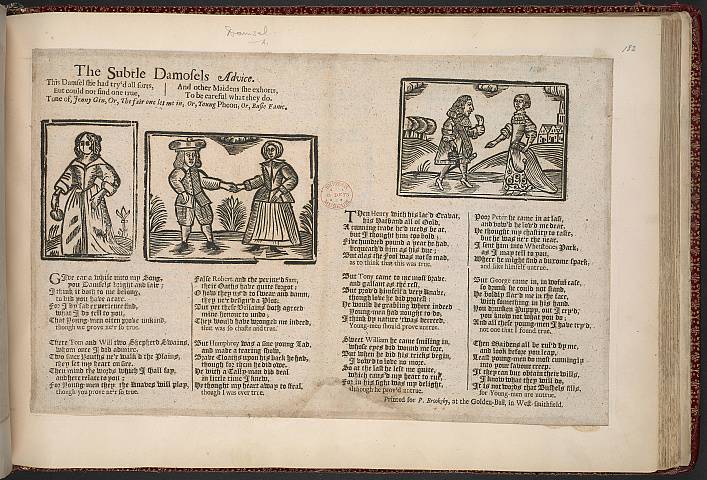 Damsel
182
The Subtle Damosels Advice.
This Damsel she had try'd all sorts,
But could not find one true,
And other Maidens she exhorts,
To be careful what they do.
Tune of, Jenny Gin, Or, The fair one let me in, Or, Young Pheon, Or, Busie Fame.
GIve ear a while unto my Song,
you Damsels bright and fair;
I think it doth to me belong,
to bid you have a care.
For I by sad experience find,
what I do tell to you,
That Young-men often prove unkind,
though we prove ne'r so true.
There Tom and Will two Shepherd Swains,
whom once I did admire,
Two finer Youths ne'r walk'd the Plains,
they set my heart on fire.
Then mind the words which I shall say,
and here relate to you:
For Young-men they the Knaves will play,
though you prove ne'r so true.
False Robert and the perjur'd Sam,
their Oaths have quite forgot;
O how they us'd to swear and damn,
they ne'r design'd a Plot:
But yet these Villains both agreed
mine honour to undo;
They wou'd have wronged me indeed,
that was so chaste and true.
But Humphrey was a fine young Lad,
and made a roaring show,
Brave Cloaths upon his back he had,
though for them he did owe.
He with a Tally-man did deal
in little time I knew,
He thought my heart away to steal,
though I was ever true.
THen Henry with his lac'd Cravat,
his Hatband all of Gold,
A cunning trade he'd needs be at,
but I thought him too bold:
Five hundred pound a year he had,
bequeath'd him as his due;
But alas the Fool was not so mad,
as to think that this was true.
But Tony came to me most brave,
and gallant as the rest,
But prov'd himself a very Knave,
though love he did protest:
He would be grabling where indeed
Young-men had nought to do,
I think by nature 'twas decreed,
Young-men should prove untrue.
Sweet William he came smiling in,
whose eyes did wound me sore,
But when he did his tricks begin,
I vow'd to love no more.
So at the last he left me quite,
which caus'd my heart to rue,
For in his sight was my delight,
although he prov'd untrue.
Poor Peter he came in at last,
and vow'd he lov'd me dear.
He thought my chastity to taste,
but he was ne'r the near.
I sent him into Whetstones Park,
as I may tell to you,
Where he might find a buxome spark,
and like himself untrue.
But George came in, in woful case,
so drunk he could not stand,
He boldly star'd me in the face,
with something in his hand.
You drunken Puppy, out I cry'd,
you know not what you do;
And all these young-men I have try'd,
not one that I found true.
Then Maidens all be rul'd by me,
and look before you leap,
Lest young-men do most cunningly
into your favour creep.
If they can but obtain their wills,
I know what they will do,
It is not words that Bushels fills,
for Young-men are untrue.
Printed for P. Brooksby, at the Golden-Ball, in West-smithfield.